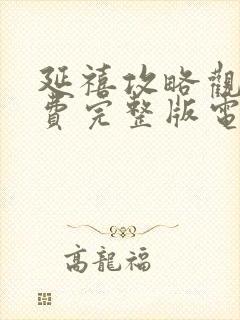 延禧攻略觀
費完整版電
高龍福